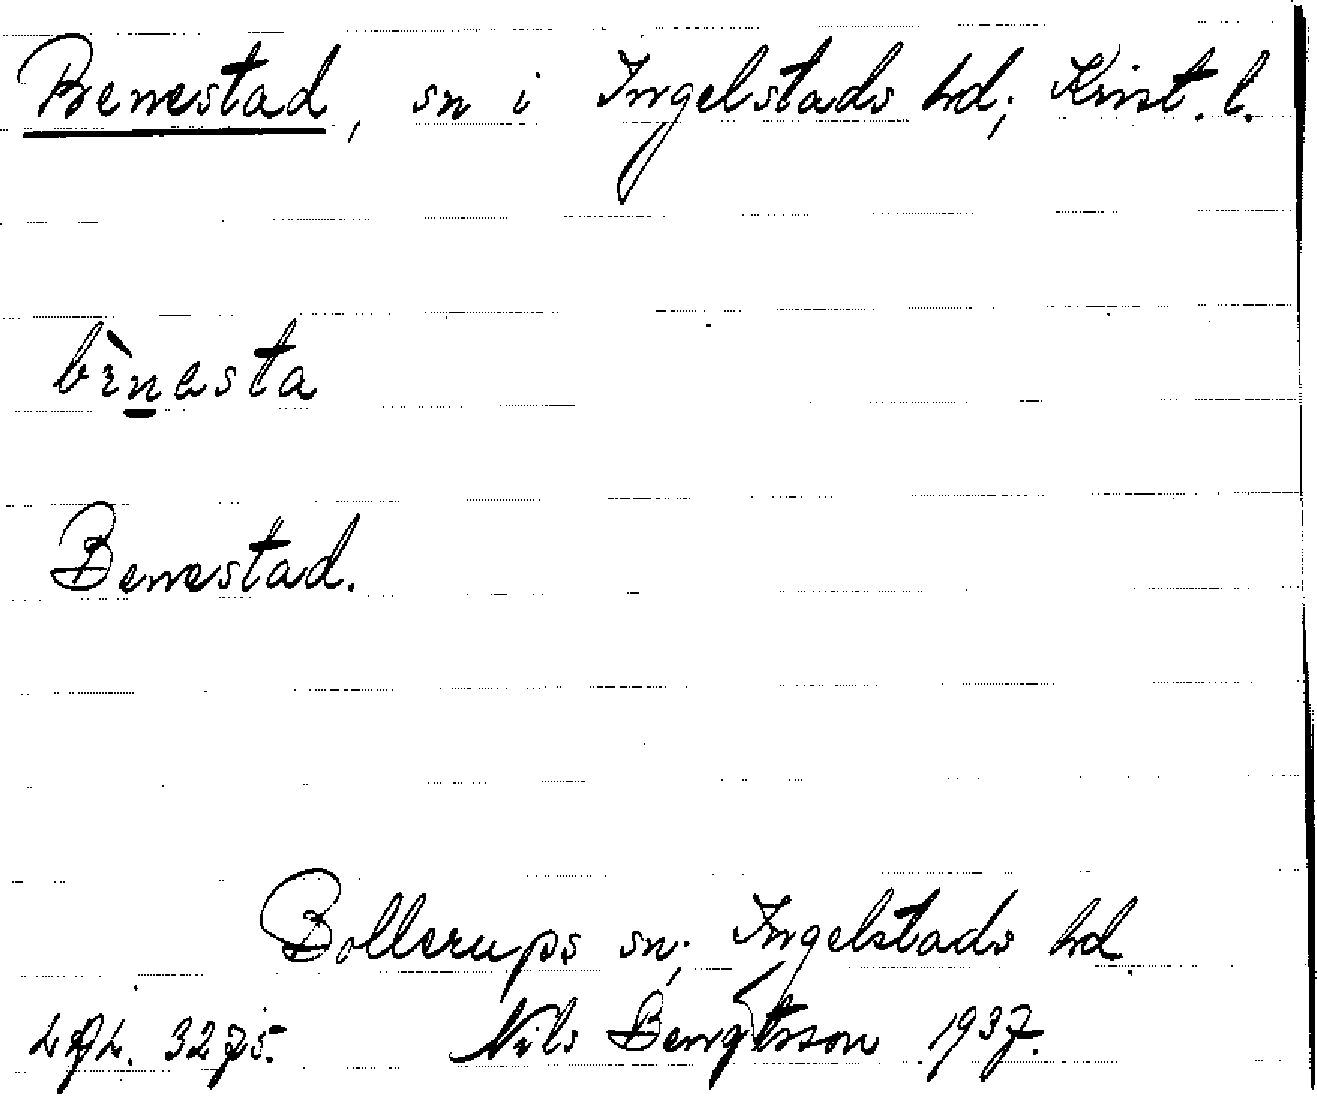 Benestad, sn i Ingelstads hd; Krist. l.
bènesta
Benestad.
Bollerups sn; Ingelstads hd.
3275. Nils Bengtsson 1937.